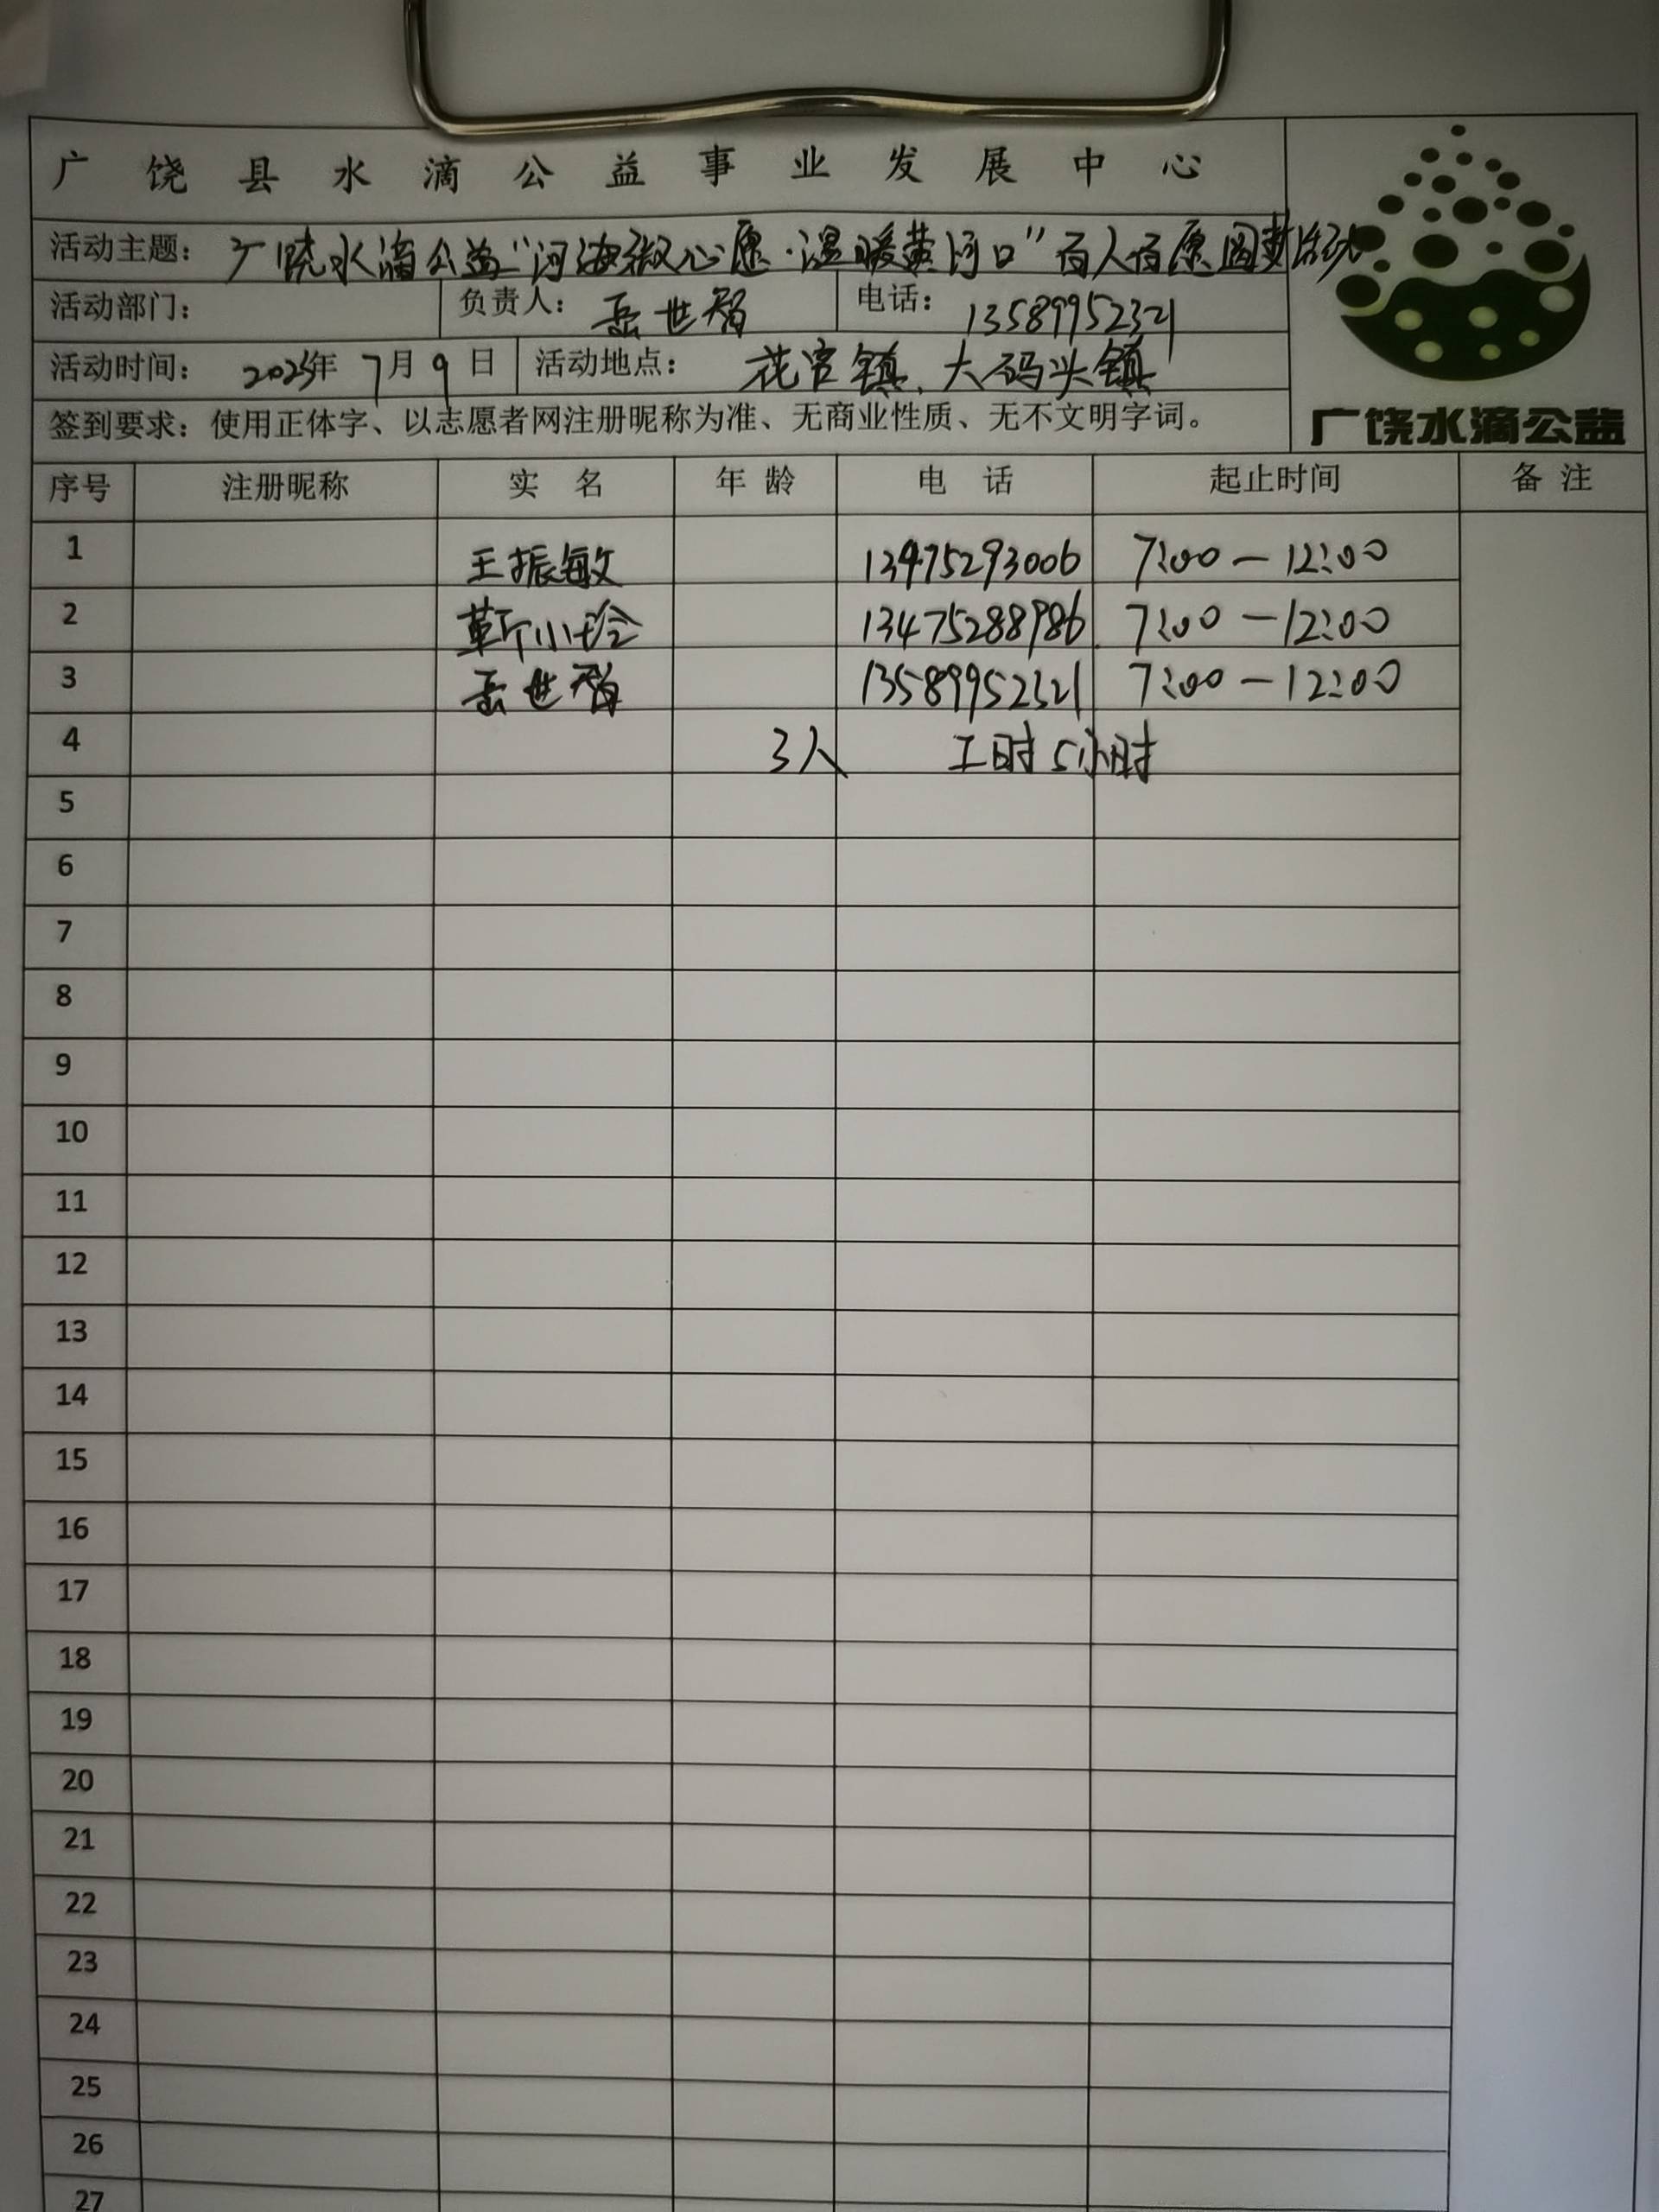 广饶县水滴公益事业发展中心
活动主题：广饶水滴公益"河海微心愿·温暖黄河口"百人百愿圆梦活动
活动部门： 负责人：岳世智 电话：13589952321
活动时间：2025年7月9日 活动地点：花官镇、大码头镇
签到要求：使用正体字、以志愿者网注册昵称为准、无商业性质、无不文明字词。
广饶水滴公益
序号 注册昵称 实名 年龄 电话 起止时间 备注
1 王振敏 13475293006 7:00-12:00
2 靳小玲 13475288986 7:00-12:00
3 岳世智 13589952321 7:00-12:00
4 3人 工时5小时
5
6
7
8
9
10
11
12
13
14
15
16
17
18
19
20
21
22
23
24
25
26
27